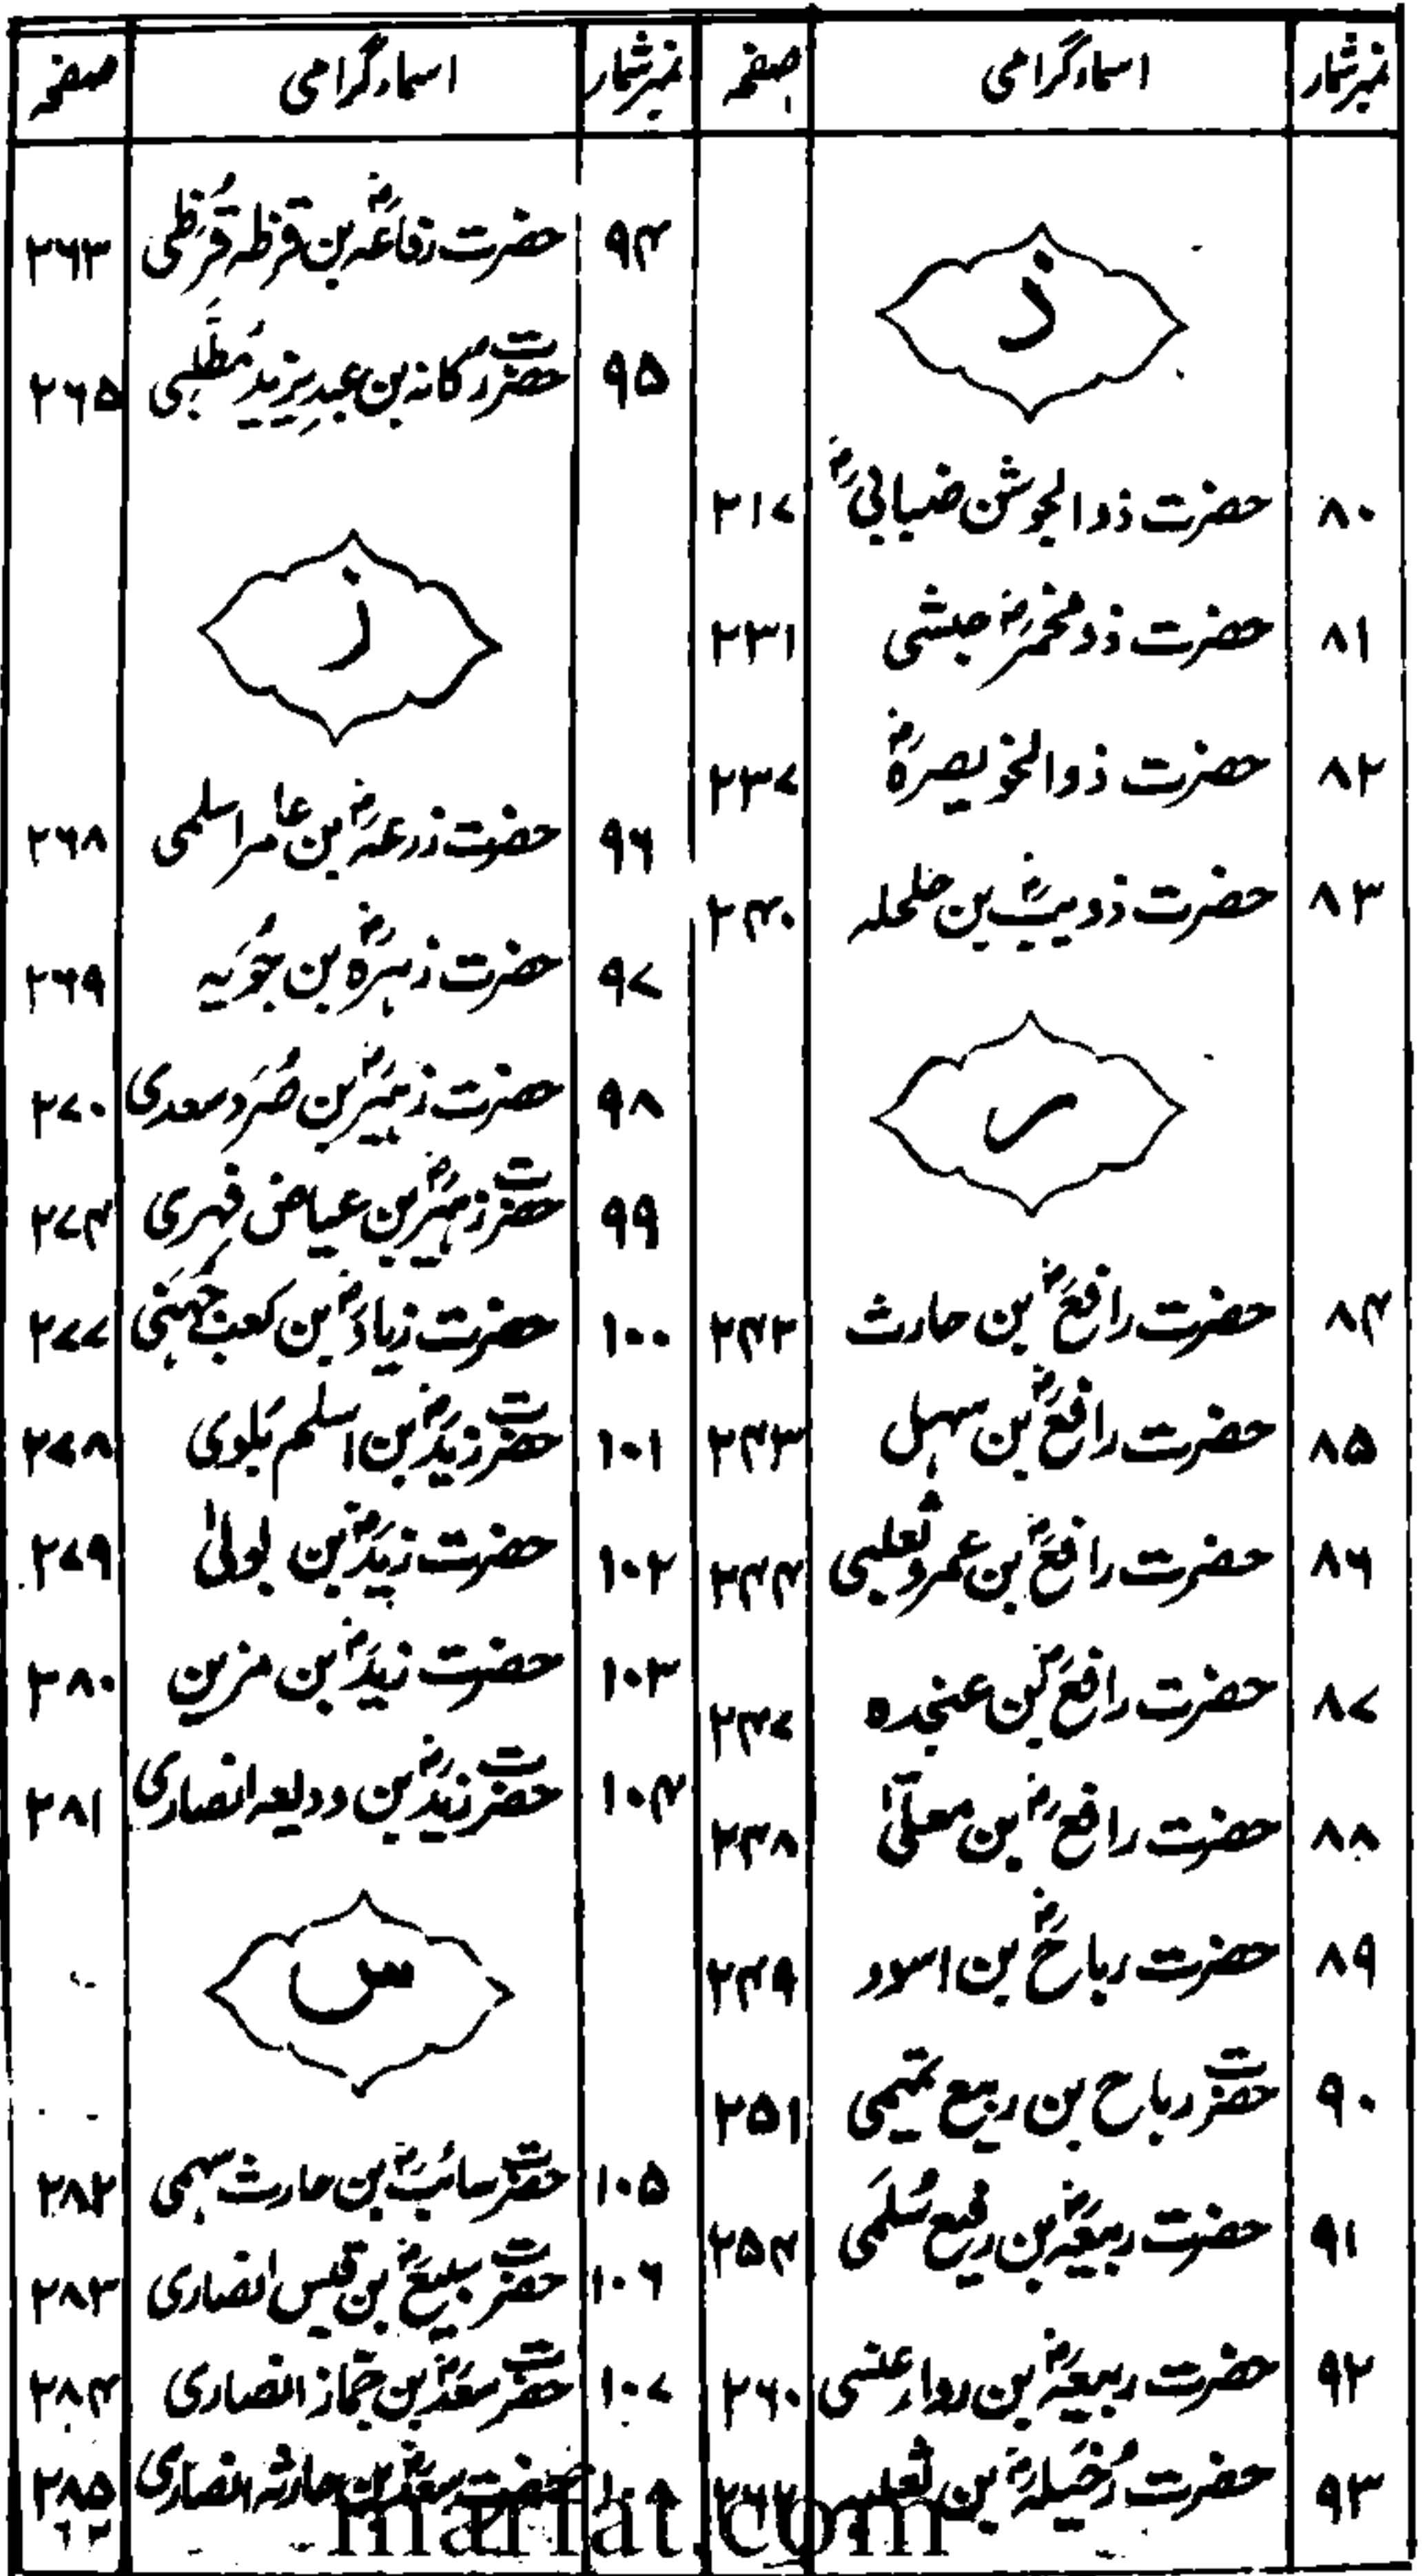 نمبرشمار اسماء گرامی صفحہ
ذ
۸۰ حضرت ذوالجوشن ضبابیؓ ۲۱۷
۸۱ حضرت ذومخمرؓ حبشی ۲۳۱
۸۲ حضرت ذوالخویصرہؓ ۲۳۷
۸۳ حضرت ذویبؓ بن حلحلہ ۲۴۰
ر
۸۴ حضرت رافعؓ بن حارث ۲۴۲
۸۵ حضرت رافعؓ بن سہل ۲۴۳
۸۶ حضرت رافعؓ بن عمرو ثعلبی ۲۴۴
۸۷ حضرت رافعؓ بن عنجدہ ۲۴۷
۸۸ حضرت رافعؓ بن معلّیٰ ۲۴۸
۸۹ حضرت رباحؓ بن اسود ۲۴۹
۹۰ حضرت رباح بن ربیع تمیمی ۲۵۱
۹۱ حضرت ربیعہؓ بن رفیع سُلَمی ۲۵۴
۹۲ حضرت ربیعہؓ بن رواء عنسی ۲۶۰
۹۳ حضرت رُخَیلہؓ بن ثعلبہ ۲۶۲
نمبرشمار اسماء گرامی صفحہ
۹۴ حضرت رفاعہؓ بن قرظہ قُرَظی ۲۶۳
۹۵ حضرت رکانہ بن عبدِ یزید مُطَّلِبی ۲۶۵
ز
۹۶ حضرت زرعہؓ بن عامر اسلمی ۲۶۸
۹۷ حضرت زہرہؓ بن جُوَیہ ۲۶۹
۹۸ حضرت زہیرؓ بن صُرَد سعدی ۲۷۰
۹۹ حضرت زہیرؓ بن عیاض فہری ۲۷۴
۱۰۰ حضرت زیادؓ بن کعب جُہَنی ۲۷۷
۱۰۱ حضرت زیدؓ بن اسلم بَلوی ۲۷۸
۱۰۲ حضرت زیدؓ بن بولیٰ ۲۷۹
۱۰۳ حضرت زیدؓ بن مزین ۲۸۰
۱۰۴ حضرت زیدؓ بن ودیعہ انصاری ۲۸۱
س
۱۰۵ حضرت سائبؓ بن حارث سہمی ۲۸۲
۱۰۶ حضرت سبیعؓ بن قیس انصاری ۲۸۳
۱۰۷ حضرت سعدؓ بن جمّاز انصاری ۲۸۴
۱۰۸ حضرت سعدؓ بن حارثہ انصاری ۲۸۵
marfat.com